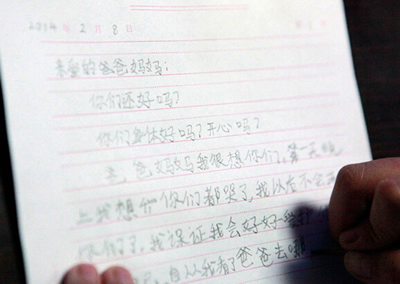 2014年2月8日
亲爱的爸爸妈妈:
你们还好吗?
你们身体好吗?开心吗?
爸妈妈我很想你们,第一天晚
上我想你们都哭了,我以后不会
你们了,我保证我会好好
自从我看了爸爸去